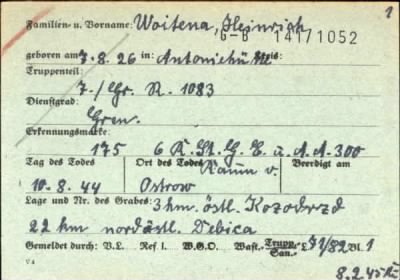 1
Familien- u. Vorname: Woitena, Heinrich
G-B 1417/1052
geboren am 7.8.26 in: Antonienhütte Kreis:
Truppenteil:
7./Gr. R. 1083
Dienstgrad:
Gren.
Erkennungsmarke:
175 6 K. St. G. E. u. A. A. 300
Tag des Todes Ort des Todes Raum v. Beerdigt am
10.8.44 Ostrow
Lage und Nr. des Grabes: 3 km östl. Kozodrzd
22 km nordöstl. Debica
Gemeldet durch: V.L. Ref I. W.G.O. Wast.- Trupp. San.- L 71/82 Bl. 1
V4
8.2.45